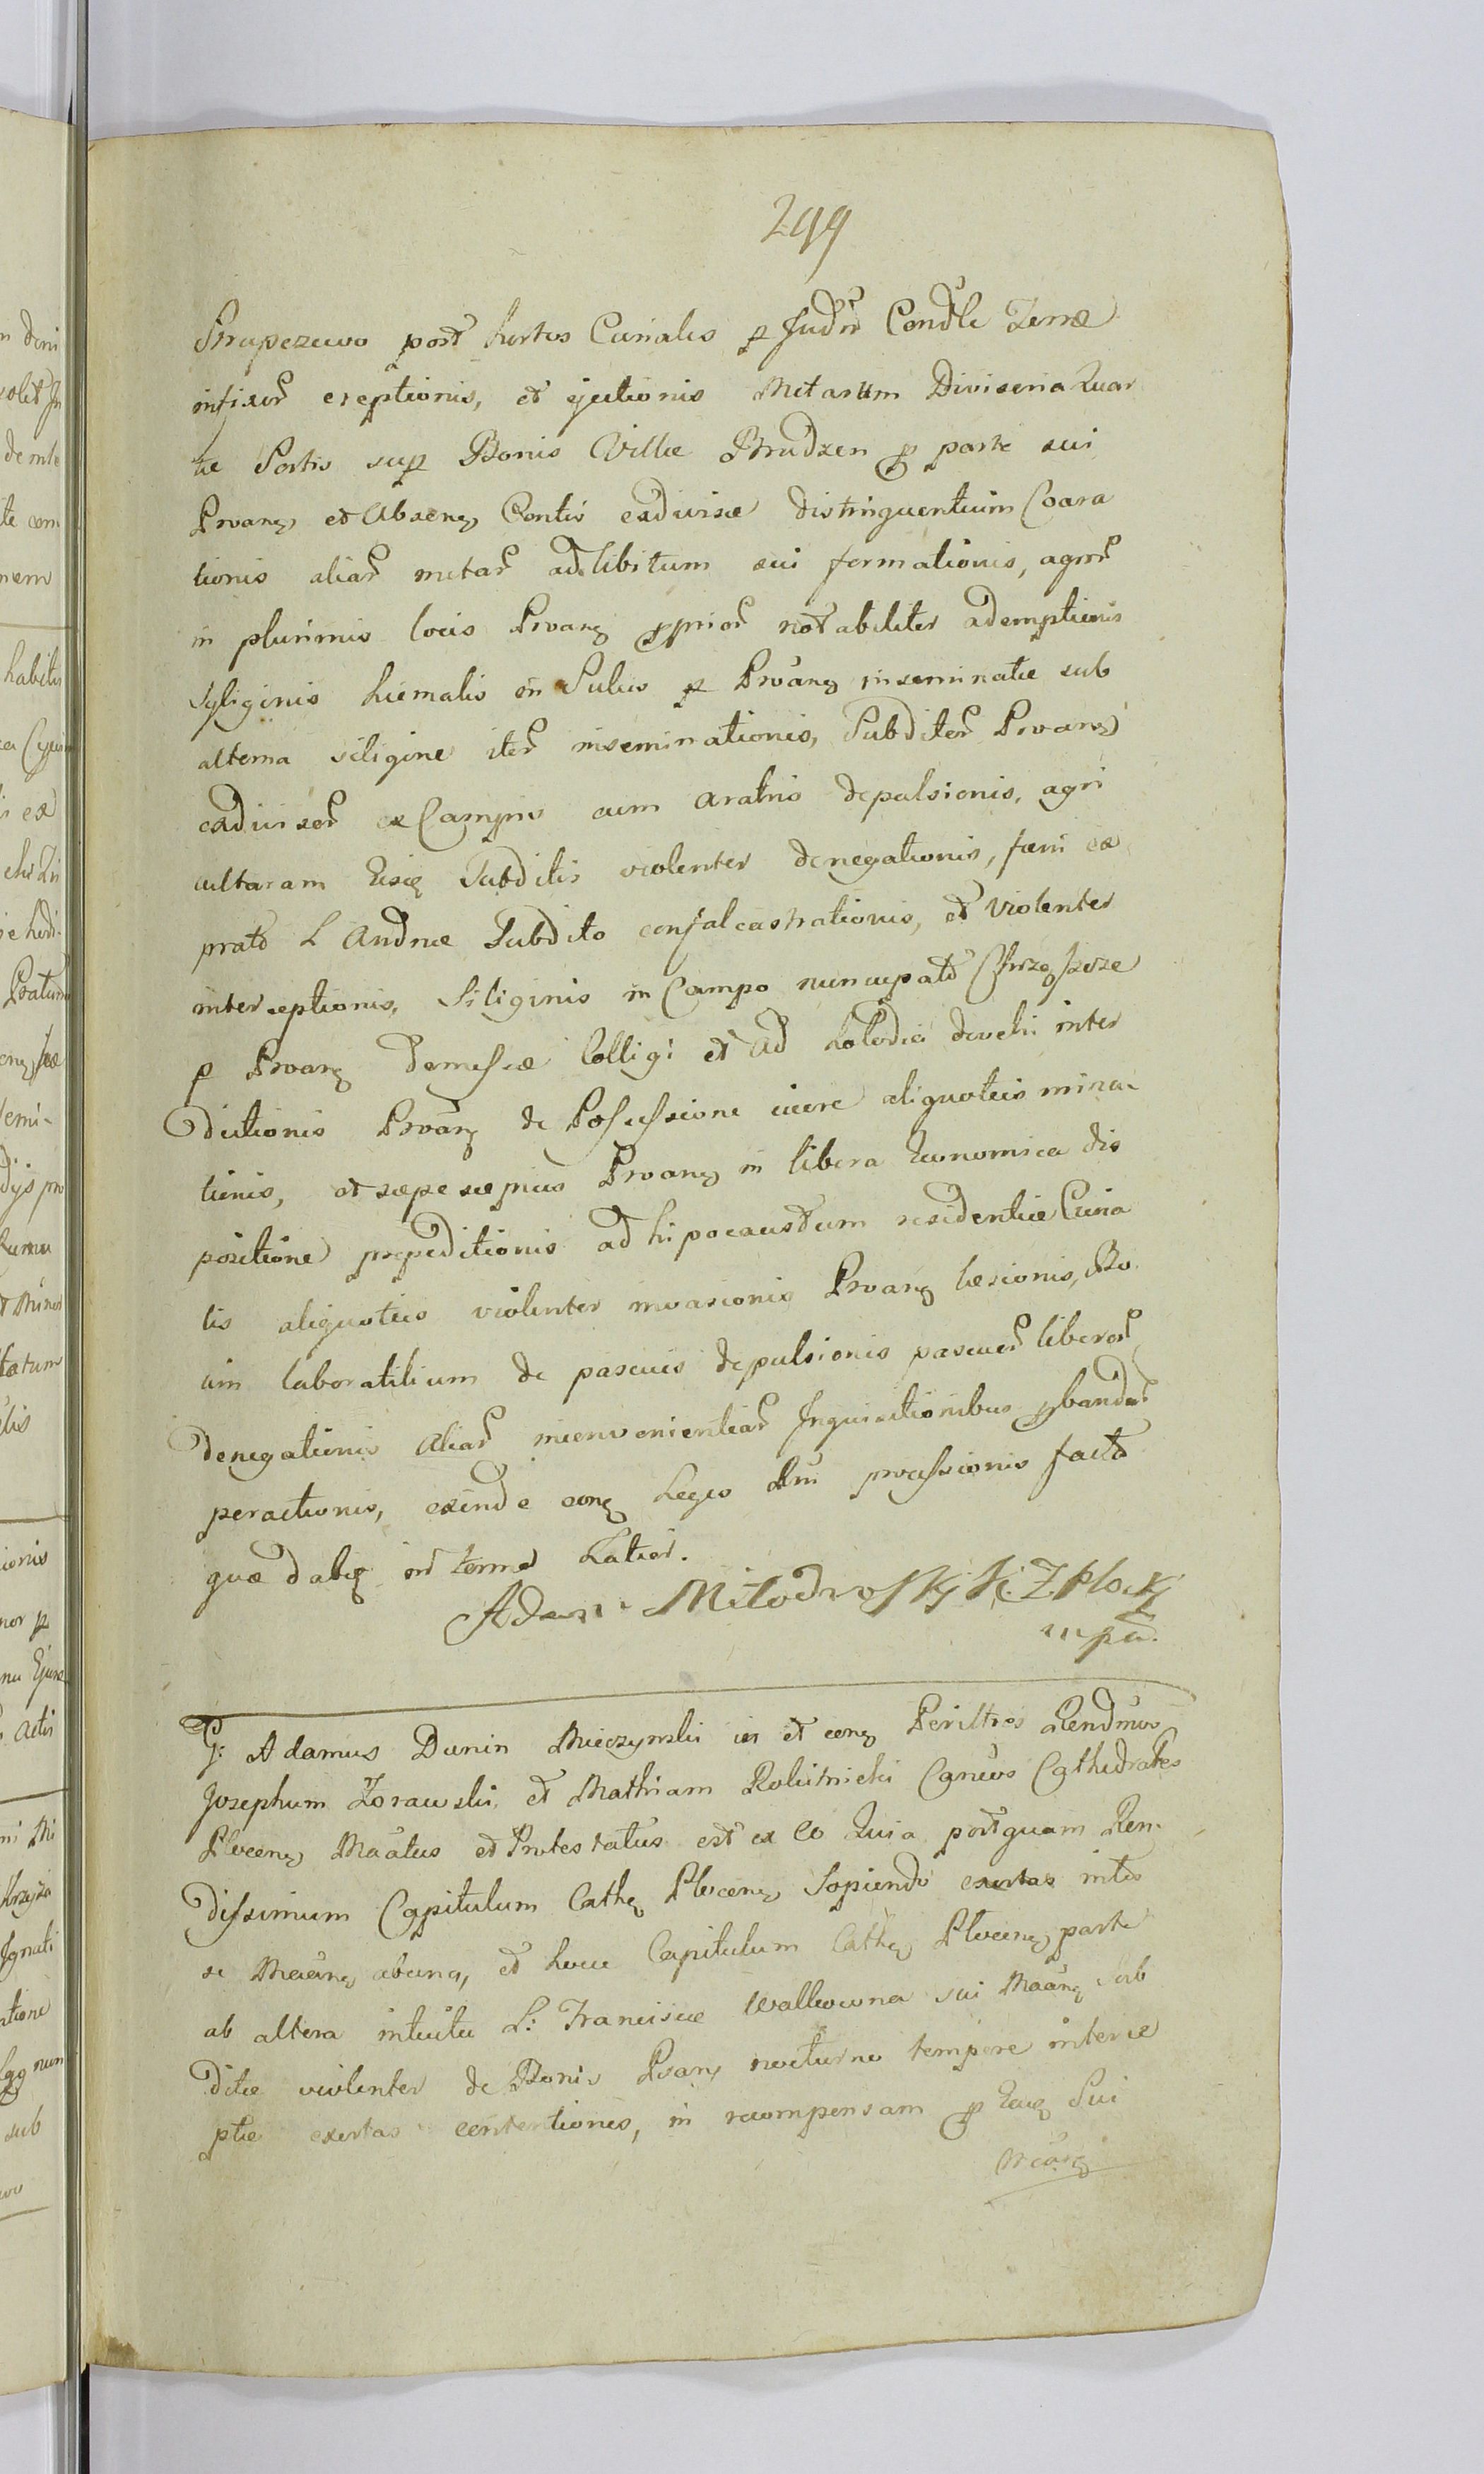 299
Strupezewo post hortos Curiales p Judm Condle Terræ
infixar ereptionis, et ejectionis Metarum Divisoria Quar
tæ Sortis sup Bonis Villæ Brudzen p parte sui
Proang et Abseng Contis exdivisæ distinguentium Coara
tionis aliar metar ad libitum sui formationis, agror
in plurimis locis Proang pprior notabiliter ademptionis
Syliginis hiemalis in Sulcis p Proang inseminatæ sub
alterna siligine iter inseminationis, Subditor Proang
exdivisor ex Campis cum aratris depulsionis, agri
culturam Eisq Subditis violenter denegationis, fæni ex
prato L Andreæ Subdito confalcastrationis, et violenter
interceptionis, Siliginis in Campo nuncupato
p Proang demessæ Colligi et ad devehi inter
dictionis Proang de Possessione jure aliquoties mina
tionis, et sæpe sæpius Proang in libera Economica dis
positione præpeditionis ad hipocaustum residentiæ Curia
lis aliquoties violenter invasionis Proang læsionis, Bo
um laboratilium de pascuis depulsionis pascuor liberor
denegationis Aliar inconvenientiar Inquisitionibus pbandar
peractionis, exinde cong Leges Rni processionis facto
quæ dabq in termo Latior.
Adam Milodrowskj K. Z. Plockj
mpa.
G: Adamus Dunin Mieczynski in et cong Perilltres Rendmos
Josephum Zorawski, et Mathiam Rokitnicki Cancos Cathedrales
Ploceng Maatus et Protestatus est ex eo Quia postquam Ren
dissimum Capitulum Cathq Ploceng Sopiendo exortas inter
se Maang abuna, et hocce Capitulum Cathq Plocenq parte
ab altera intuitu L: Franciscæ Walkowna sui Maang Sub
ditæ violenter de Bonis Proang nocturno tempore interce
ptæ exortas contentiones, in recompensam p Eundq Sui
Mcang